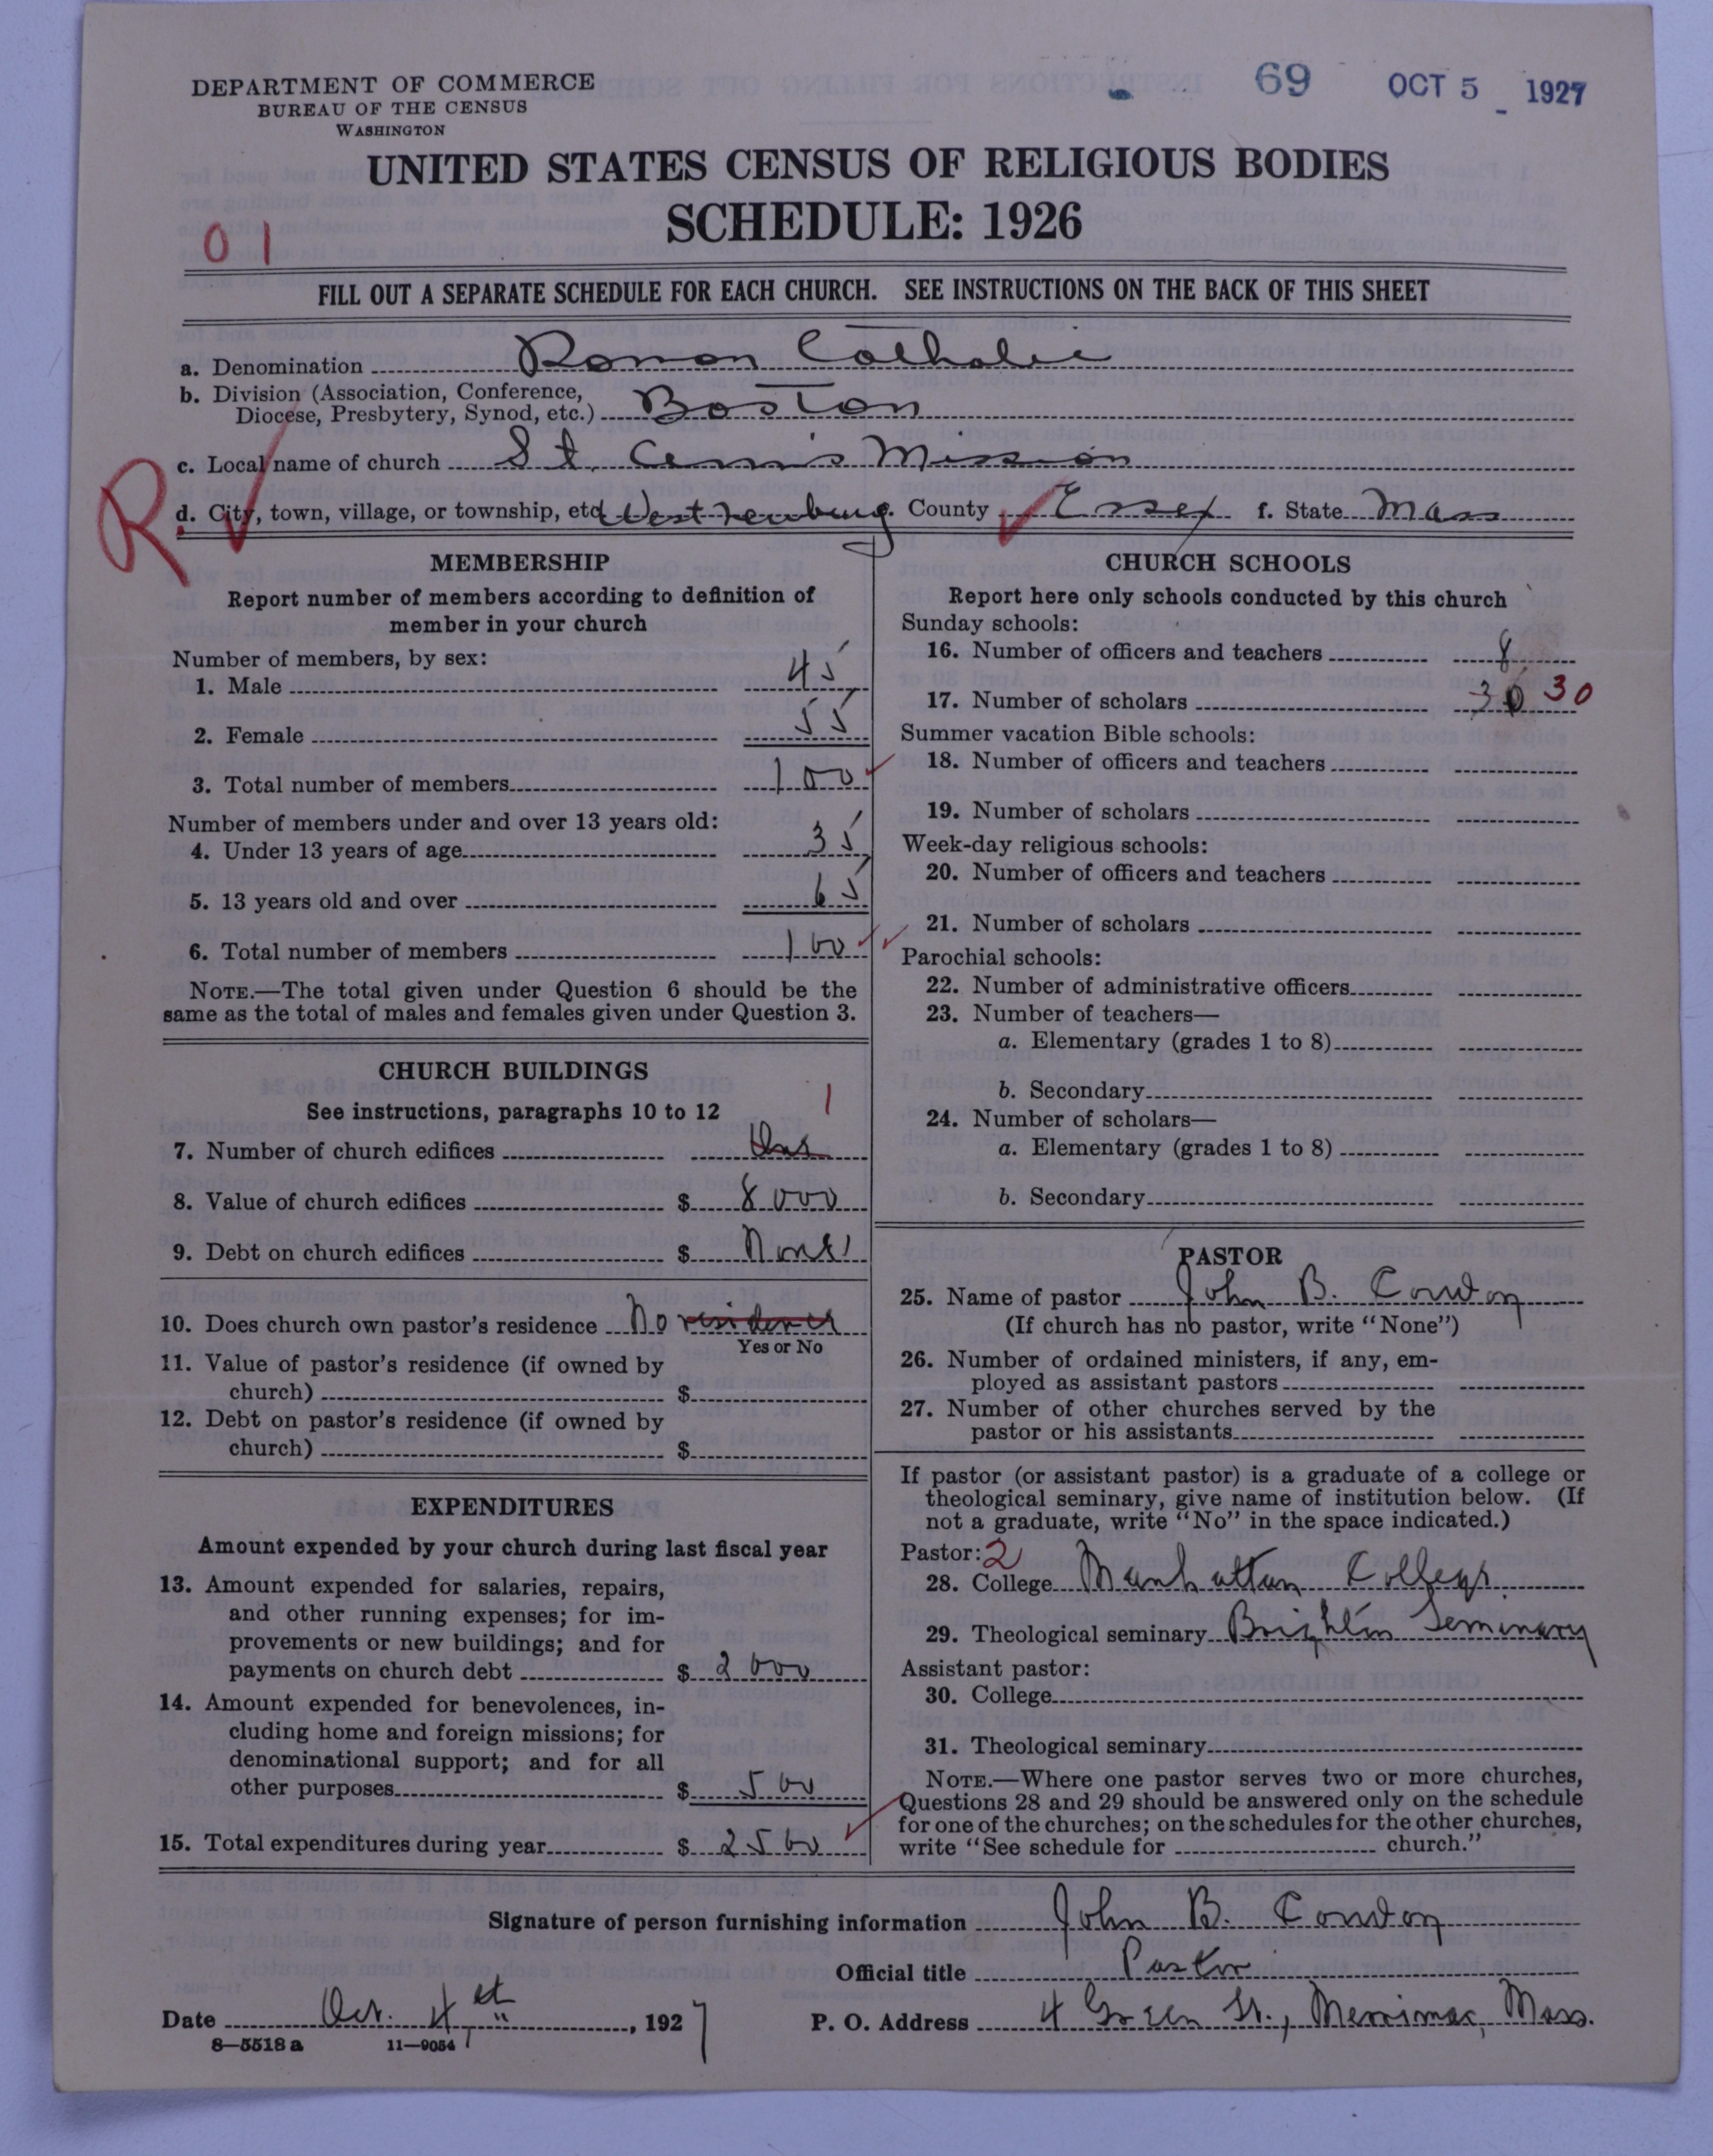 DEPARTMENT OF COMMERCE
BUREAU OF THE CENSUS
WASHINGTON
69 OCT 5 1927
UNITED STATES CENSUS OF RELIGIOUS BODIES
SCHEDULE: 1926
01
FILL OUT A SEPARATE SCHEDULE FOR EACH CHURCH. SEE INSTRUCTIONS ON THE BACK OF THIS SHEET
a. Denomination Roman Catholic
b. Division (Association, Conference,
Diocese, Presbytery, Synod, etc.) Boston
c. Local name of church St. Mission
R
d. City, town, village, or township, etc West Newbury e. County Essex f. State Mass
MEMBERSHIP
Report number of members according to definition of
member in your church
Number of members, by sex:
1. Male 45
2. Female 55
3. Total number of members 100
Number of members under and over 13 years old:
4. Under 13 years of age 35
5. 13 years old and over 65
6. Total number of members 100
NOTE.—The total given under Question 6 should be the
same as the total of males and females given under Question 3.
CHURCH BUILDINGS
See instructions, paragraphs 10 to 12 1
7. Number of church edifices One
8. Value of church edifices $ 8000
9. Debt on church edifices $ None
10. Does church own pastor's residence No residence
Yes or No
11. Value of pastor's residence (if owned by
church) $
12. Debt on pastor's residence (if owned by
church) $
EXPENDITURES
Amount expended by your church during last fiscal year
13. Amount expended for salaries, repairs,
and other running expenses; for im-
provements or new buildings; and for
payments on church debt $ 2000
14. Amount expended for benevolences, in-
cluding home and foreign missions; for
denominational support; and for all
other purposes $ 500
15. Total expenditures during year $ 2500
CHURCH SCHOOLS
Report here only schools conducted by this church
Sunday schools:
16. Number of officers and teachers 8
17. Number of scholars 30 30
Summer vacation Bible schools:
18. Number of officers and teachers
19. Number of scholars
Week-day religious schools:
20. Number of officers and teachers
21. Number of scholars
Parochial schools:
22. Number of administrative officers
23. Number of teachers—
a. Elementary (grades 1 to 8)
b. Secondary
24. Number of scholars—
a. Elementary (grades 1 to 8)
b. Secondary
PASTOR
25. Name of pastor John B. Condon
(If church has no pastor, write "None")
26. Number of ordained ministers, if any, em-
ployed as assistant pastors
27. Number of other churches served by the
pastor or his assistants
If pastor (or assistant pastor) is a graduate of a college or
theological seminary, give name of institution below. (If
not a graduate, write "No" in the space indicated.)
Pastor: 2
28. College Manhattan College
29. Theological seminary Brighton Seminary
Assistant pastor:
30. College
31. Theological seminary
NOTE.—Where one pastor serves two or more churches,
Questions 28 and 29 should be answered only on the schedule
for one of the churches; on the schedules for the other churches,
write "See schedule for church."
Signature of person furnishing information John B. Condon
Official title Pastor
Date Oct. 4th, 1927 P. O. Address 4 Green St., Merrimac, Mass.
8—5518 a 11—9054